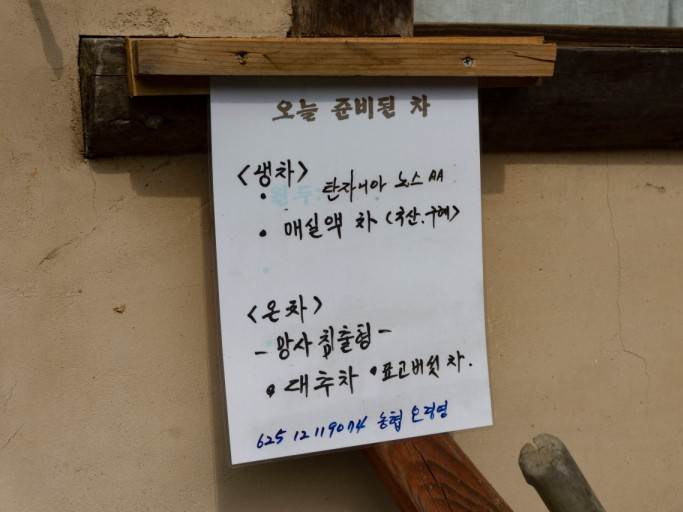 오늘 준비된 차
<냉차>
• 원두: 탄자니아 노스 AA
• 매실액 차 (국산.구례)
<온차>
- 왕사 침출형 -
• 대추차 • 표고버섯 차.
625 12 119074 농협